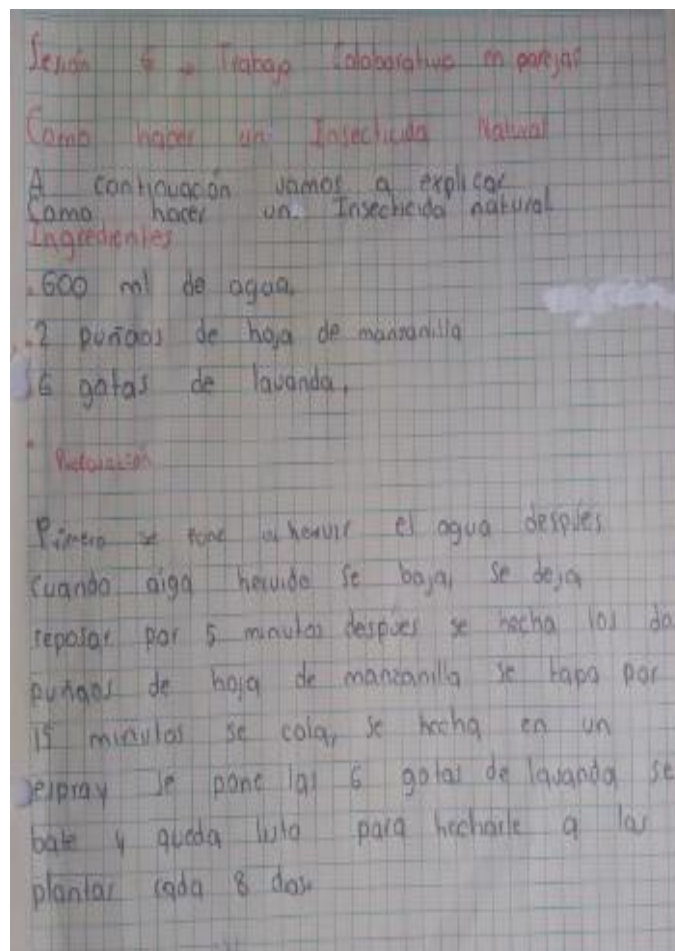 Sesión 6 → Trabajo Colaborativo en parejas
Como hacer un Insecticida Natural
A continuación vamos a explicar
Como hacer un Insecticida natural
Ingredientes
.600 ml de agua.
.2 puñaos de hoja de manzanilla
6 gotas de lavanda.
Primero se pone a hervir el agua despúes
cuando aiga hervido se baja, se deja
reposar por 5 minutos despúes se hecha los do
puñaos de hoja de manzanilla se tapa por
15 minutos se cola, se hecha en un
espray se pone las 6 gotas de lavanda se
bate y queda listo para hecharle a las
plantas cada 8 días.